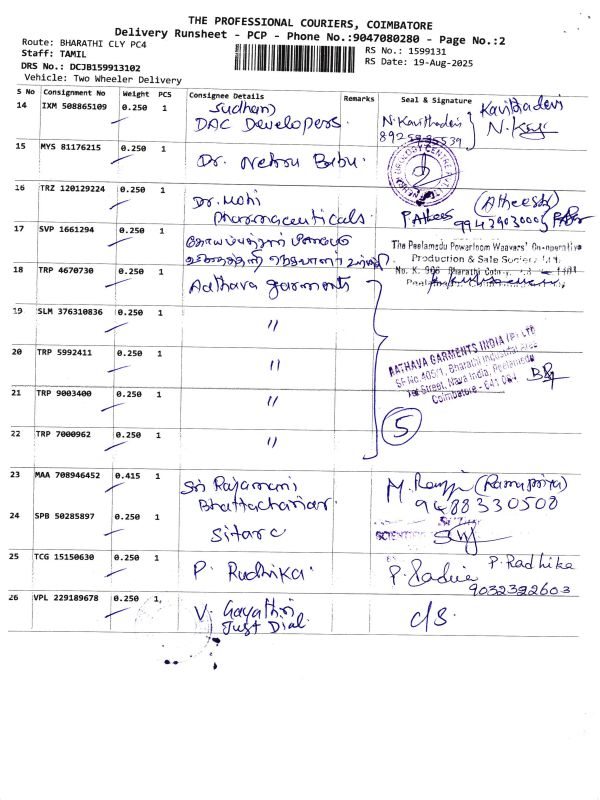 THE PROFESSIONAL COURIERS, COIMBATORE
Delivery Runsheet - PCP - Phone No.:9047080280 - Page No.:2
Route: BHARATHI CLY PC4
RS No.: 1599131
Staff: TAMIL
RS Date: 19-Aug-2025
DRS No.: DCJB159913102
Vehicle: Two Wheeler Delivery
S No Consignment No Weight PCS Consignee Details Remarks Seal & Signature
14 IXM 508865109 0.250 1 DAC Developers. N. Kavithadevi Kavithadevi
15 MYS 81176215 0.250 1 Dr. Nehru Babu.
16 TRZ 120129224 0.250 1 Dr. Mohi
Pharmaceuticals. P.Athees (Atheesh)
17 SVP 1661294 0.250 1
The Peelamedu Powerloom Weavers' Co-operative
Production & Sale Society Ltd.
18 TRP 4670730 0.250 1 Aathava garments
19 SLM 376310836 0.250 1 〃
20 TRP 5992411 0.250 1 〃
AATHAVA GARMENTS INDIA (P) LTD
SF No.405/1, Bharathi Industrial Area
1st Street, Nava India, Peelamedu
Coimbatore - 641 004
21 TRP 9003400 0.250 1 〃
5
22 TRP 7000962 0.250 1 〃
23 MAA 708946452 0.415 1 Sri Rajamani
Bhattachariar. (Ramapriya)
9488330508
24 SPB 50285897 0.250 1 Sitarc
SCIENTIFIC
25 TCG 15150630 0.250 1 P. Radhika. P. Radhika
9032322603
26 VPL 229189678 0.250 1, V. Gayathri c/s.
Just Dial.